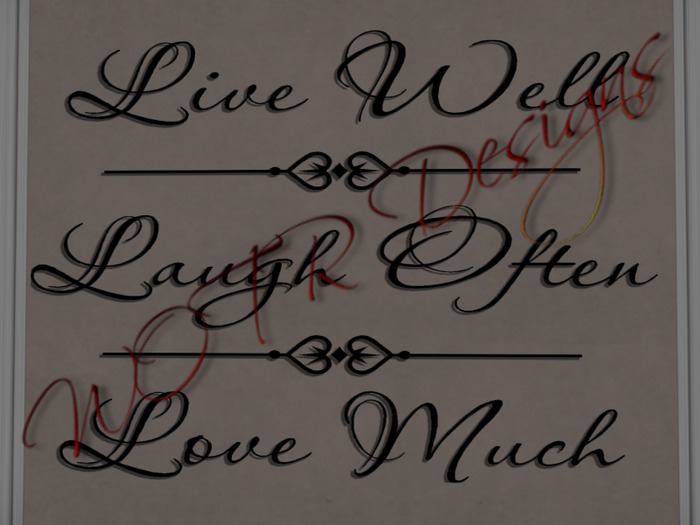 Live Well
Laugh Often
Love Much
Designs